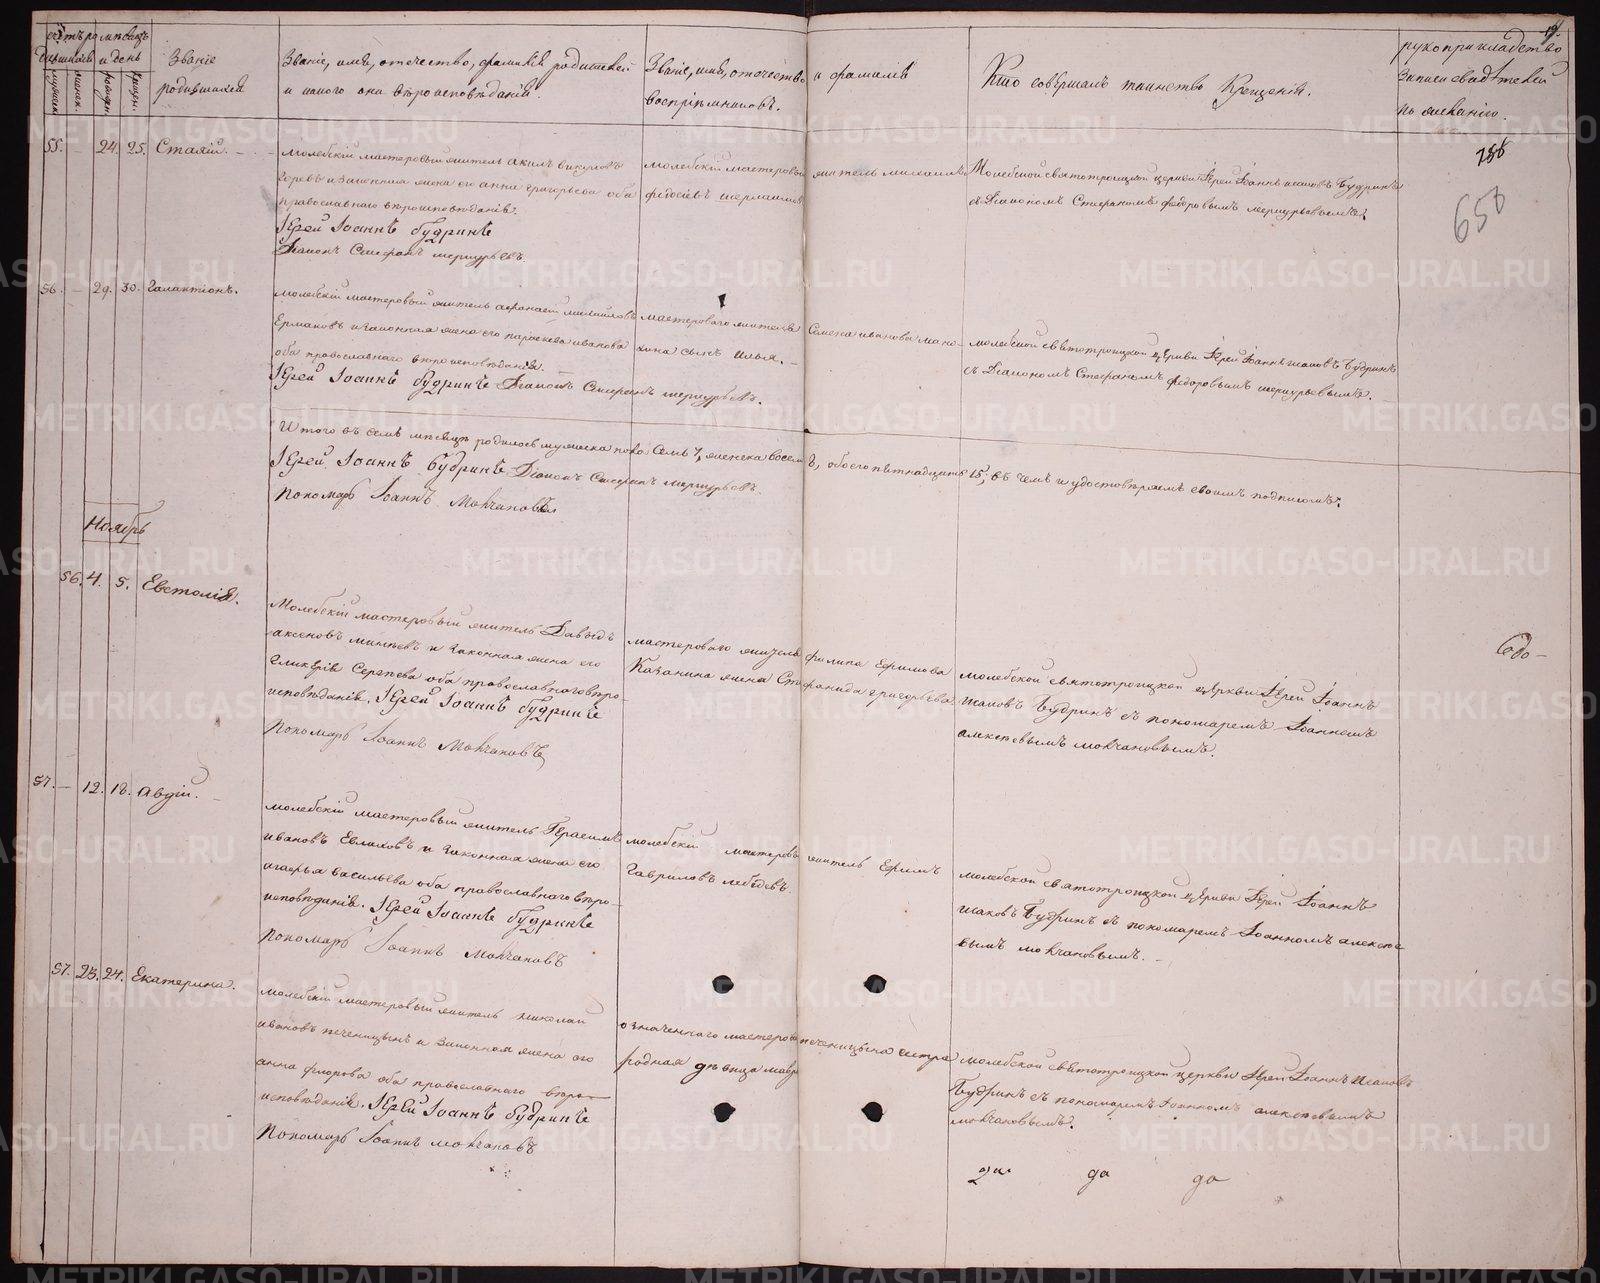 счетъ родившихся
мѣсяцъ и день
мужеск.
женск.
рожден.
крещен.
Званіе родившихся.
Званіе, имя, отечество, фамилія родителей
и какого они вѣроисповѣданія.
Званіе, имя, отечество и фамилія
воспріемниковъ.
Кто совершалъ таинство Крещенія.
рукоприкладство
записи свидѣтелей
по желанію.
55. — 24. 25. Стахій.
молебскій мастеровый житель акимъ викуловъ
и законная жена его анна григорьева оба
православнаго вѣроисповѣданія.
Іерей Іоаннъ Будринъ
Діаконъ Стефанъ меркурьевъ.
молебскій мастеровый житель михаилъ
федосѣевъ
Молебской святотроицкой церкви Іерей Іоаннъ исаковъ Будринъ
съ Діакономъ Стефаномъ федоровымъ меркурьевымъ.
658
56. — 29. 30. Галактіонъ.
молебскій мастеровый житель афонасій михаиловъ
Ермаковъ и законная жена его параскева иванова
оба православнаго вѣроисповѣданія.
Іерей Іоаннъ Будринъ Діаконъ Стефанъ меркурьевъ.
мастероваго жителя Семена иванова
сынъ илья.
молебской святотроицкой церкви Іерей Іоаннъ исаковъ Будринъ
съ Діакономъ Стефаномъ федоровымъ меркурьевымъ.
Итого въ семъ мѣсяцѣ родилось мужеска пола семь 7, женска восемь, обоего пѣтнадцать 15, въ чемъ и удостовѣряемъ своимъ подписомъ.
Іерей Іоаннъ Будринъ Діаконъ Стефанъ меркурьевъ.
Пономарь Іоаннъ Молчановъ
Ноябрь
56. 4. 5. Евстолія.
Молебскій мастеровый житель Давыдъ
аксеновъ и законная жена его
гликерія Сергѣева оба православнаго вѣро-
исповѣданія. Іерей Іоаннъ Будринъ
Пономарь Іоаннъ Молчановъ
мастероваго жителя филипа Ефимова
Казанина жена Стефанида григорьева.
молебской святотроицкой церкви Іерей Іоаннъ
исаковъ Будринъ съ пономаремъ Іоанномъ
алексѣевымъ молчановымъ.
57. — 12. 18. авдій.
молебскій мастеровый житель Герасимъ
ивановъ и законная жена его
васильева оба православнаго вѣро-
исповѣданія. Іерей Іоаннъ Будринъ
Пономарь Іоаннъ Молчановъ
молебскій мастеровъ житель Ефимъ
Гавриловъ лебедевъ.
молебской святотроицкой церкви Іерей Іоаннъ
исаковъ Будринъ съ пономаремъ Іоанномъ алексѣе
вымъ молчановымъ.
57. 23. 24. Екатерина.
молебскій мастеровый житель николай
ивановъ печеницынъ и законная жена его
анна флорова оба православнаго вѣро-
исповѣданія. Іерей Іоаннъ Будринъ
Пономарь Іоаннъ молчановъ
означеннаго мастерова печеницына сестра
родная дѣвица мавра
молебской святотроицкой церкви Іерей Іоаннъ исаковъ
Будринъ съ пономаремъ Іоанномъ алексѣевымъ
молчановымъ.
да да